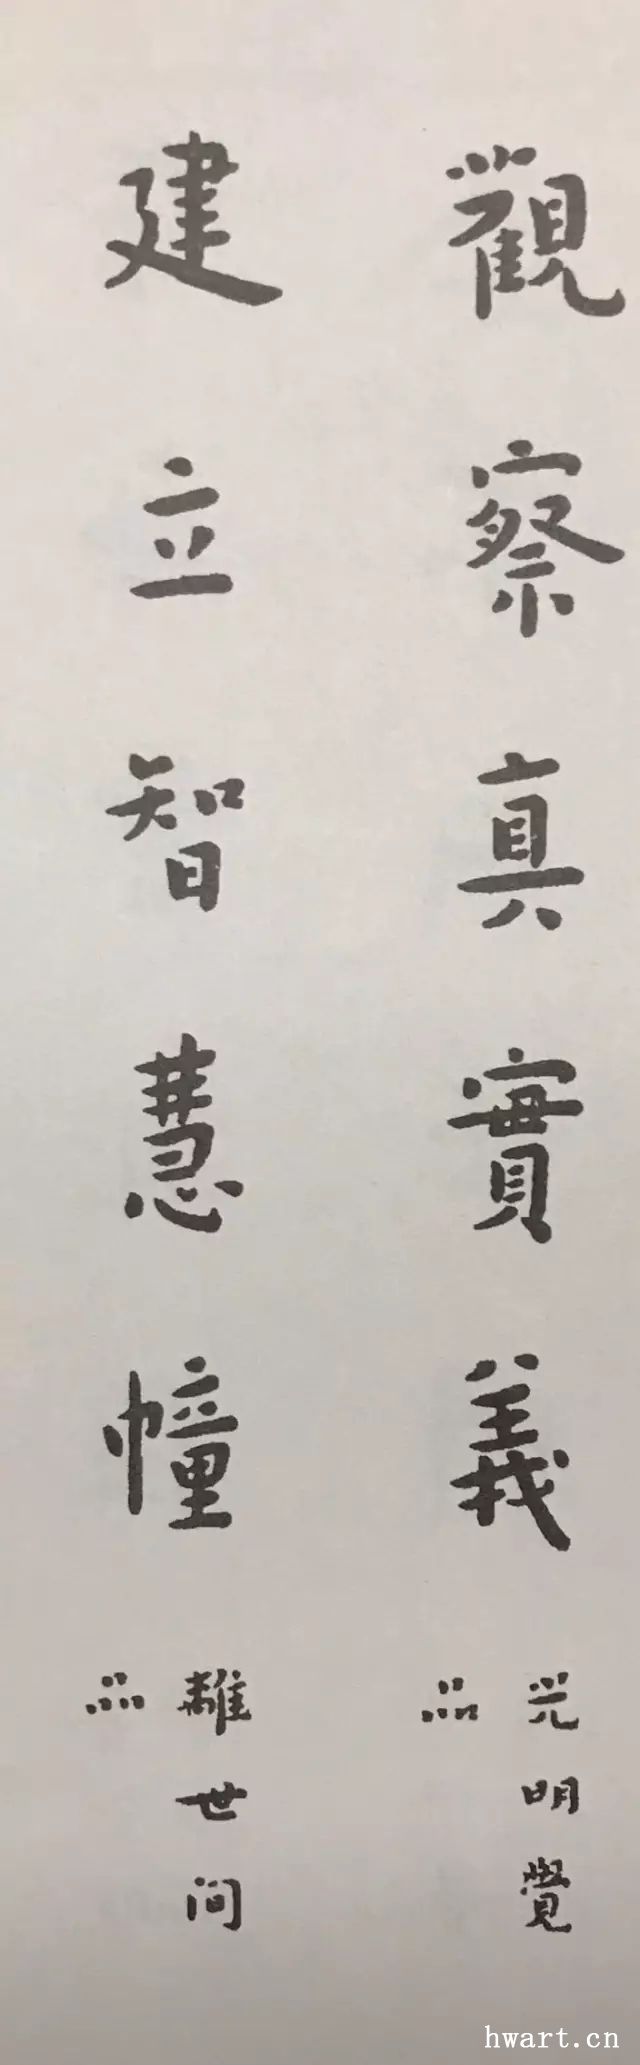 觀察真實義
光明覺
品
建立智慧幢
離世间
品
hwart.cn